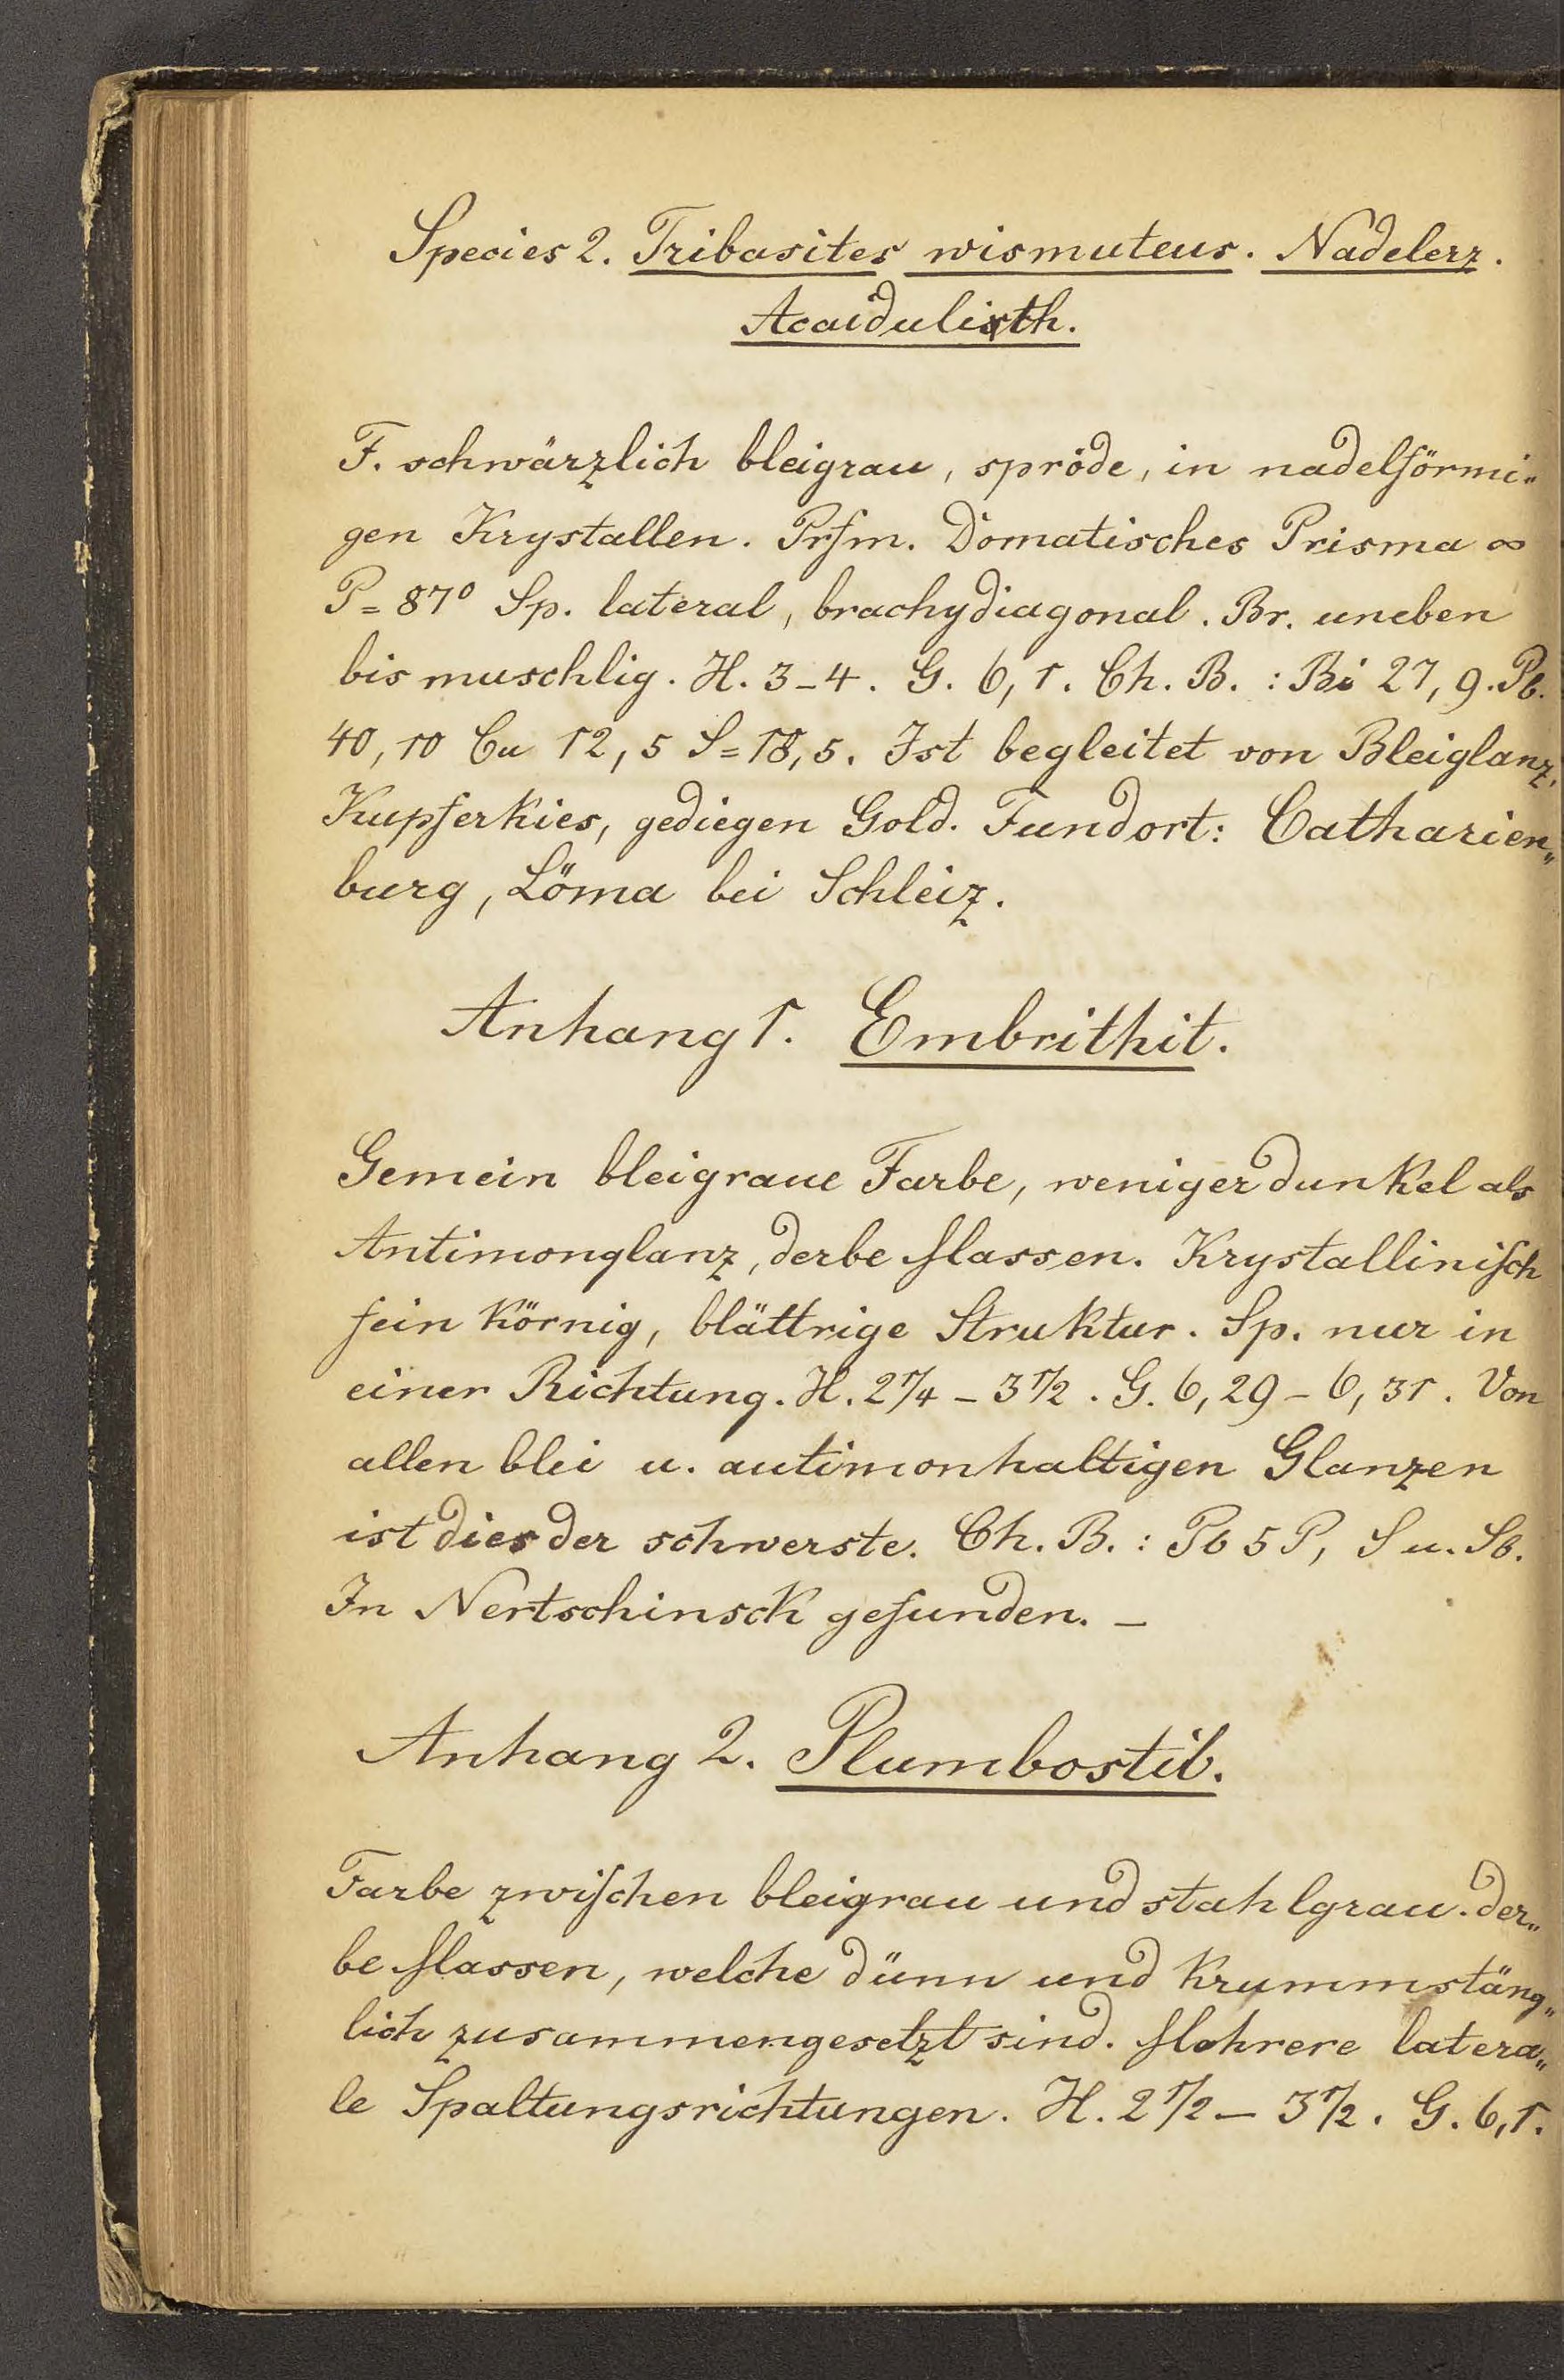 Species 2. Tribasites wismuteus. Nadelerz.
Acaidulisth.
F. schwärzlich bleigrau, spröde, in nadelförmi„
gen Krystallen. Prsm. Domatisches Prisma ∞
P = 87° Sp. lateral, brachydiagonal. Br. uneben
bis muschlig. H. 3-4. G. 6,1. Ch. B. : Bi 27,9. Pb.
40,10 Cu 12,5 S = 18,5. Ist begleitet von Bleiglanz,
Kupferkies, gediegen Gold. Fundort: Catharien„
burg, Löma bei Schleiz.
Anhang 1. Embrithit.
Gemein bleigraue Farbe, weniger dunkel als
Antimonglanz, derbe Massen. Krystallinisch
fein körnig, blättrige Struktur. Sp. nur in
einer Richtung. H. 2 1/4 - 3 1/2. G. 6,29 - 6,31. Von
allen blei u. autimonhaltigen Glanzen
ist dies der schwerste. Ch. B. : Pb 5 P, S u. Sb.
In Nertschinsck gefunden. –
Anhang 2. Plumbostib.
Farbe zwischen bleigrau und stahlgrau. der„
be Massen, welche dünn und krummstäng„
lich zusammengesetzt sind. Mehrere latera„
le Spaltungsrichtungen. H. 2 1/2 – 3 1/2. G. 6,1.